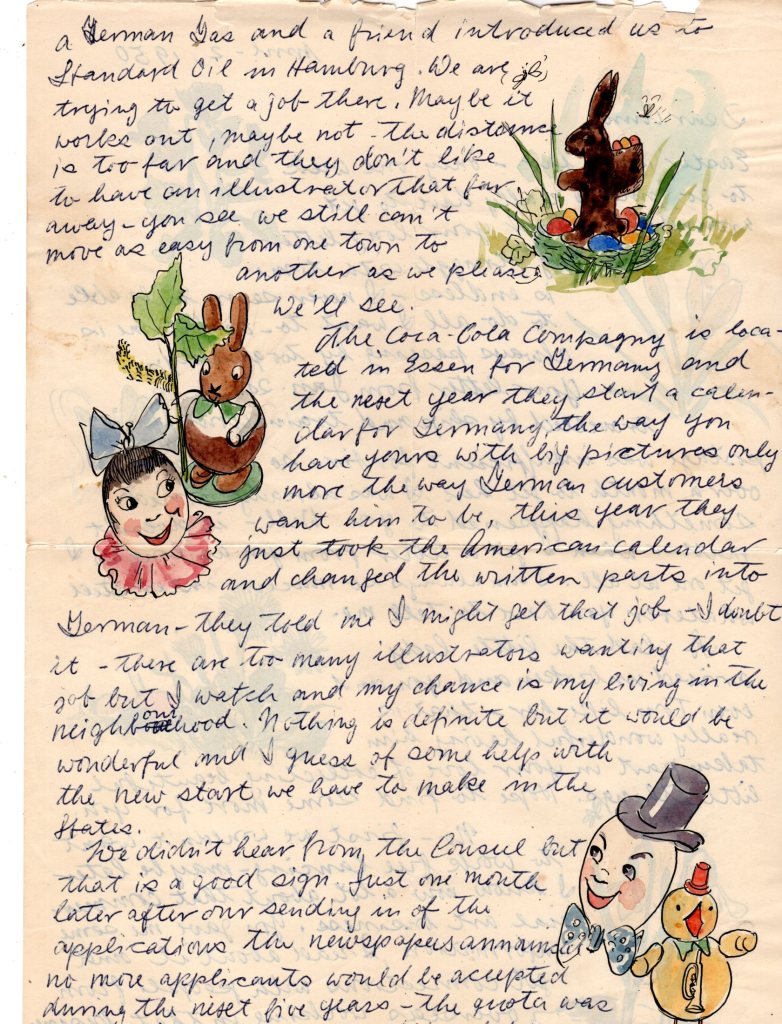 a German Gas and a friend introduced us to
Standard Oil in Hamburg. We are
trying to get a job there. Maybe it
works out, maybe not - the distance
is too far and they don't like
to have an illustrator that far
away - you see we still can't
move as easy from one town to
another as we please.
We'll see.
The Coca-Cola Compagny is loca-
ted in Essen for Germany and
the next year they start a calen-
dar for Germany, the way you
have yours with big pictures only
more the way German customers
want him to be, this year they
just took the American calendar
and changed the written parts into
German - they told me I might get that job - I doubt
it - there are too many illustrators wanting that
job but I watch and my chance is my living in the
neighbourhood. Nothing is definite but it would be
wonderful and I guess of some help with
the new start we have to make in the
States.
We didn't hear from the Consul but
that is a good sign. Just one month
later after our sending in of the
applications the newspapers announced
no more applicants would be accepted
during the next five years - the quota was